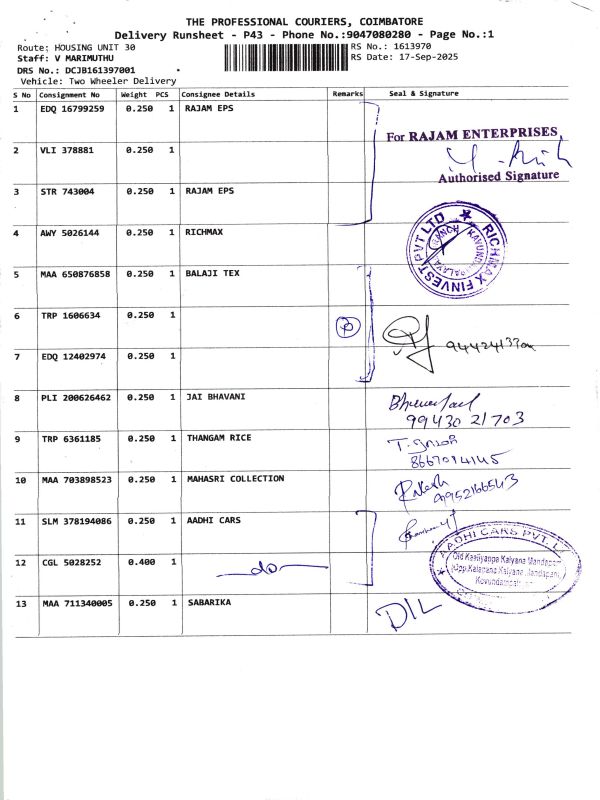 THE PROFESSIONAL COURIERS, COIMBATORE
Delivery Runsheet - P43 - Phone No.:9047080280 - Page No.:1
Route: HOUSING UNIT 30 RS No.: 1613970
Staff: V MARIMUTHU RS Date: 17-Sep-2025
DRS No.: DCJB161397001
Vehicle: Two Wheeler Delivery
S No Consignment No Weight PCS Consignee Details Remarks Seal & Signature
1 EDQ 16799259 0.250 1 RAJAM EPS
For RAJAM ENTERPRISES,
2 VLI 378881 0.250 1
Authorised Signature
3 STR 743004 0.250 1 RAJAM EPS
4 AWY 5026144 0.250 1 RICHMAX
RICHMAX FINVEST PVT LTD
5 MAA 650876858 0.250 1 BALAJI TEX
6 TRP 1606634 0.250 1
7 EDQ 12402974 0.250 1
8 PLI 200626462 0.250 1 JAI BHAVANI
99430 21703
9 TRP 6361185 0.250 1 THANGAM RICE
8667014145
10 MAA 703898523 0.250 1 MAHASRI COLLECTION
Rakesh
9952166543
11 SLM 378194086 0.250 1 AADHI CARS
AADHI CARS PVT. L
Old Kasiyappa Kalyana Mandapam
12 CGL 5028252 0.400 1 do
13 MAA 711340005 0.250 1 SABARIKA D/L